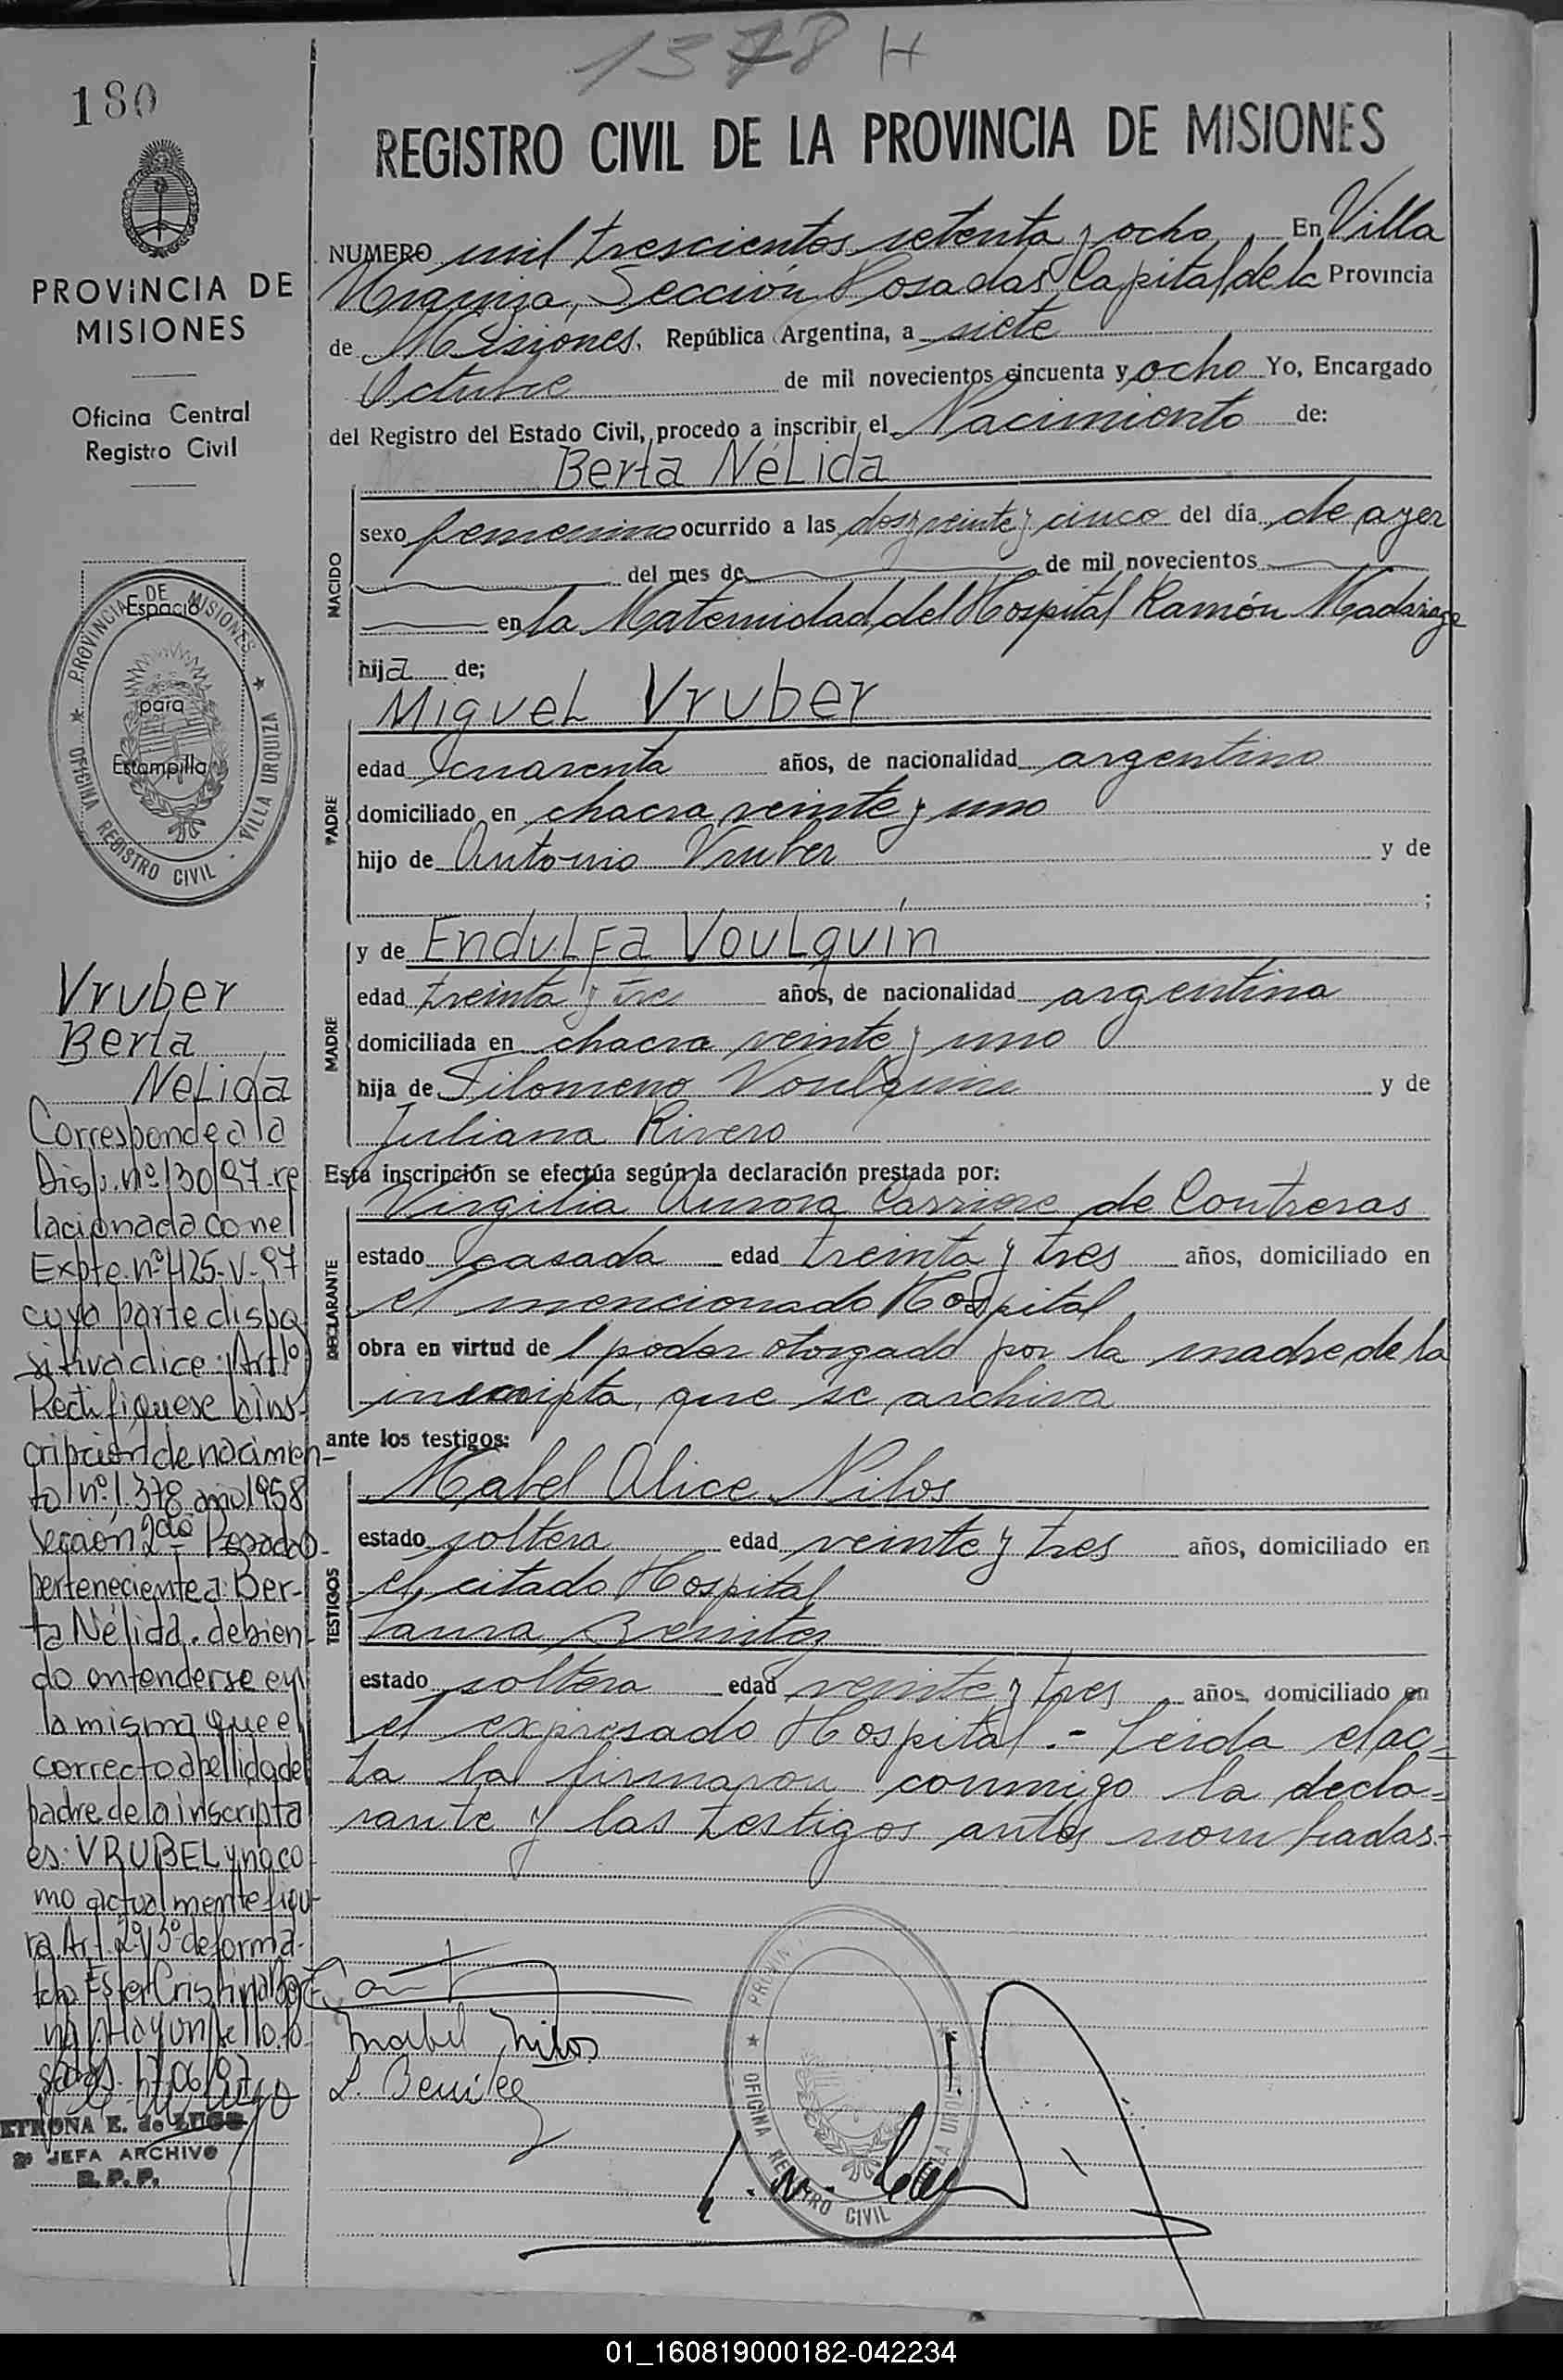 1378 H
180
REGISTRO CIVIL DE LA PROVINCIA DE MISIONES
PROVINCIA DE
MISIONES
Oficina Central
Registro Civil
NUMERO mil trescientos setenta y ocho En Villa
Urquiza, Sección Posadas Capital de la Provincia
de Misiones. República Argentina, a siete
Octubre de mil novecientos cincuenta y ocho Yo, Encargado
del Registro del Estado Civil, procedo a inscribir el Nacimiento de:
Berta NéLida
NACIDO
sexo femenino ocurrido a las dos y veinte y cinco del día de ayer
del mes de de mil novecientos
en la Maternidad del Hospital Ramón Madariaga
hija de;
MigueL Vruber
PADRE
edad cuarenta años, de nacionalidad argentino
domiciliado en chacra veinte y uno
hijo de Antonio Vruber y de
;
MADRE
y de EnduLfa VouLquin
edad treinta y tre años, de nacionalidad argentina
domiciliada en chacra veinte y uno
hija de Filomeno Voulquin y de
Juliana Rivero
Esta inscripción se efectúa según la declaración prestada por:
DECLARANTE
Virgilia Aurora de Contreras
estado casada edad treinta y tres años, domiciliado en
el mencionado Hospital
obra en virtud de l poder otorgado por la madre de la
inscripta, que se archiva
ante los testigos:
TESTIGOS
Mabel Alice Nilos
estado soltera edad veinte y tres años, domiciliado en
el citado Hospital
Laura Benitez
estado soltera edad veinte y tres años, domiciliado en
el expresado Hospital.- Leida el ac=
ta la firmaron conmigo la decla=
rante y las testigos antes nombradas.-
Mabel Nilos
L. Benitez
PROVINCIA DE MISIONES
OFICINA REGISTRO CIVIL - VILLA URQUIZA
Espacio
para
Estampilla
Vruber
Berta
NeLida
Corresponde a la
Disp. nº 130/97-re
lacionada con el
Expte. nº 425-V-97
cuya parte dispo
sitiva dice: Art 1º)
Rectifiquese la ins-
cripción de nacimien-
to nº 1.378 año 1958
Sección 2da Posadas
perteneciente a: Ber-
ta Nélida. debien-
do entenderse en
la misma que el
correcto apellido del
padre de la inscripta
es: VRUBEL y no co
mo actualmente figu-
ra. Art. 2º y 3º de forma-
Fdo Ester Cristina
Hay un sello. Po-
sadas. 17/06/97
ETRONA E. de LUGO
JEFA ARCHIVO
R. P. P.
PROVIN
OFICINA REGISTRO CIVIL
01_160819000182-042234